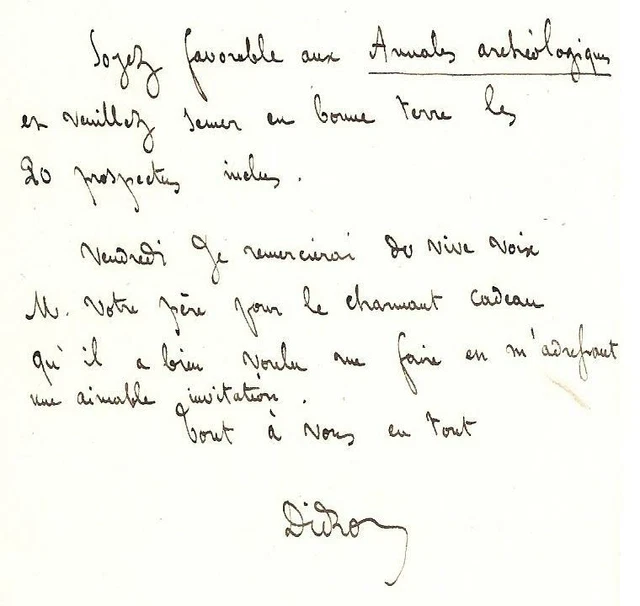 Soyez favorable aux Annales archéologiques
et veuillez semer en bonne terre les
20 prospectus inclus.
Vendredi je remercierai de vive voix
M. votre père pour le charmant cadeau
qu'il a bien voulu me faire en m'adressant
une aimable invitation.
Tout à vous en tout
Didron